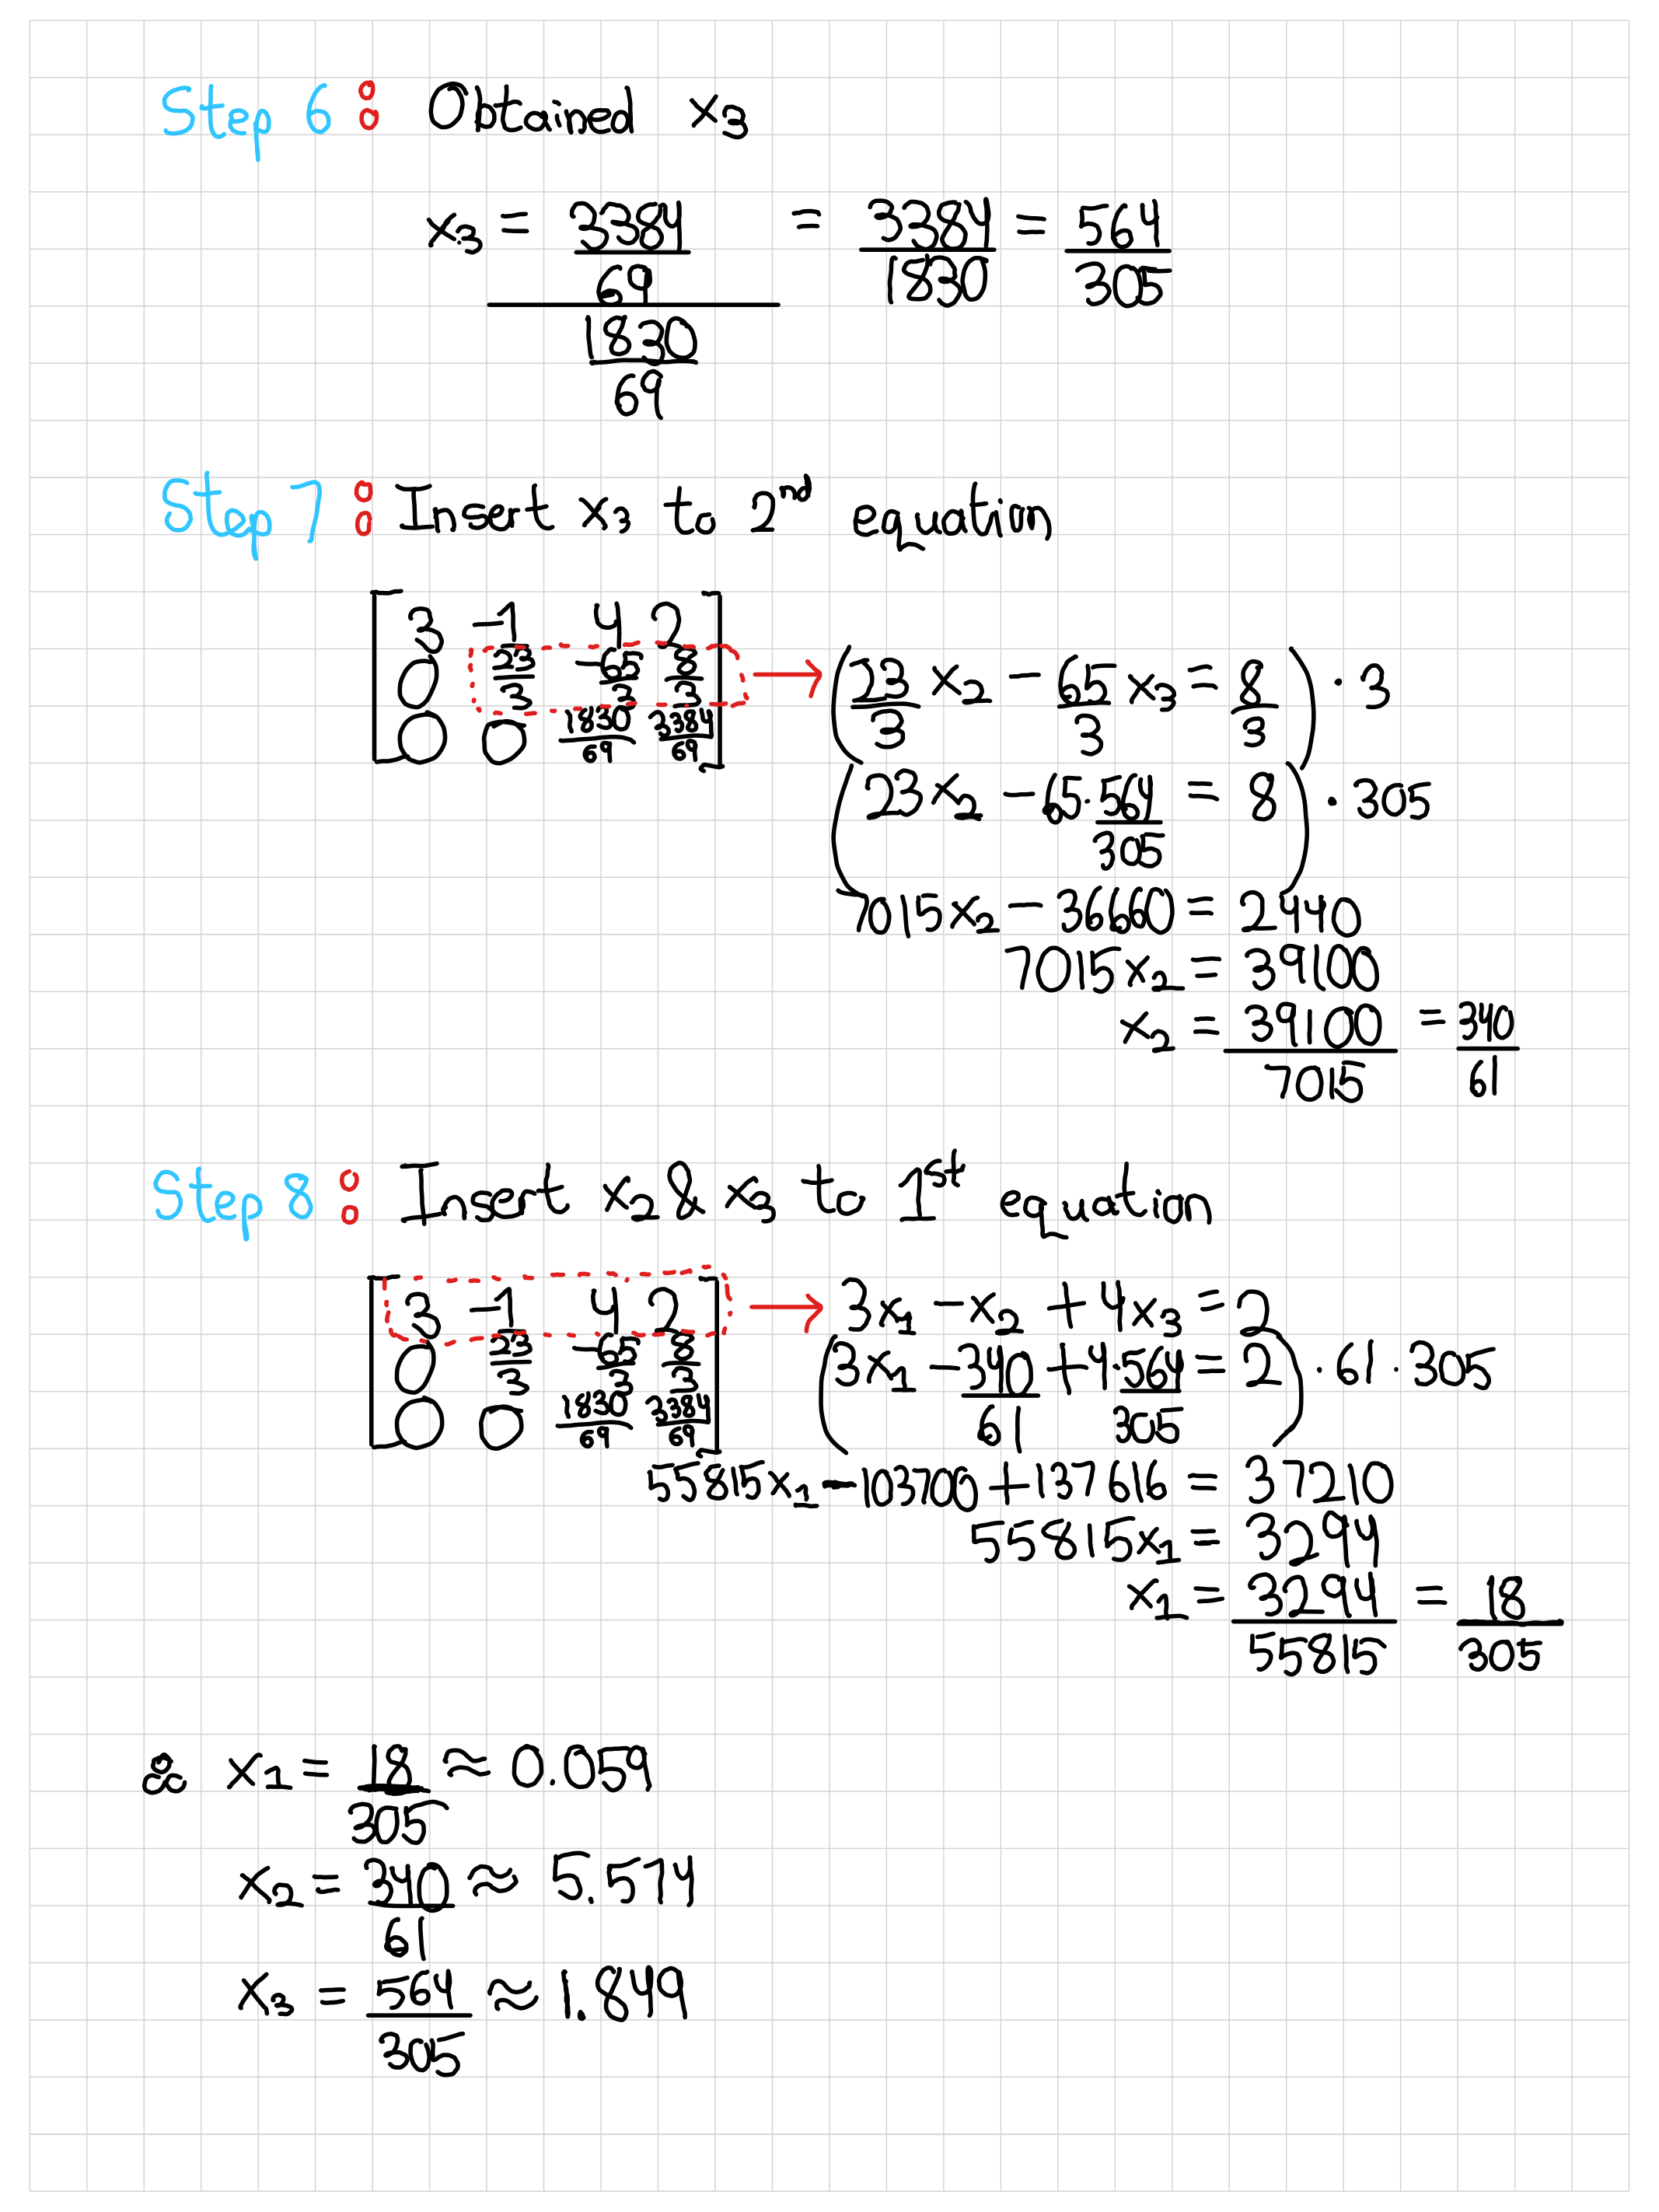 Step 6: Obtained x₃
x₃ = (3384/69)/(1830/69) = 3384/1830 = 564/305
Step 7: Insert x₃ to 2ⁿᵈ equation
[3 -1 4 2]
[0 23/3 -65/3 8/3] → (23/3 x₂ - 65/3 x₃ = 8/3) · 3
[0 0 1830/69 3384/69]
(23x₂ - 65 · 564/305 = 8) · 305
7015x₂ - 36660 = 2440
7015x₂ = 39100
x₂ = 39100/7015 = 340/61
Step 8: Insert x₂ & x₃ to 1ˢᵗ equation
[3 -1 4 2] → 3x₁ - x₂ + 4x₃ = 2
[0 23/3 -65/3 8/3] (3x₁ - 340/61 + 4 · 564/305 = 2) · 61 · 305
[0 0 1830/69 3384/69]
55815x₁ - 103700 + 137616 = 37210
55815x₁ = 3294
x₁ = 3294/55815 = 18/305
∴ x₁ = 18/305 ≈ 0.059
x₂ = 340/61 ≈ 5.574
x₃ = 564/305 ≈ 1.849